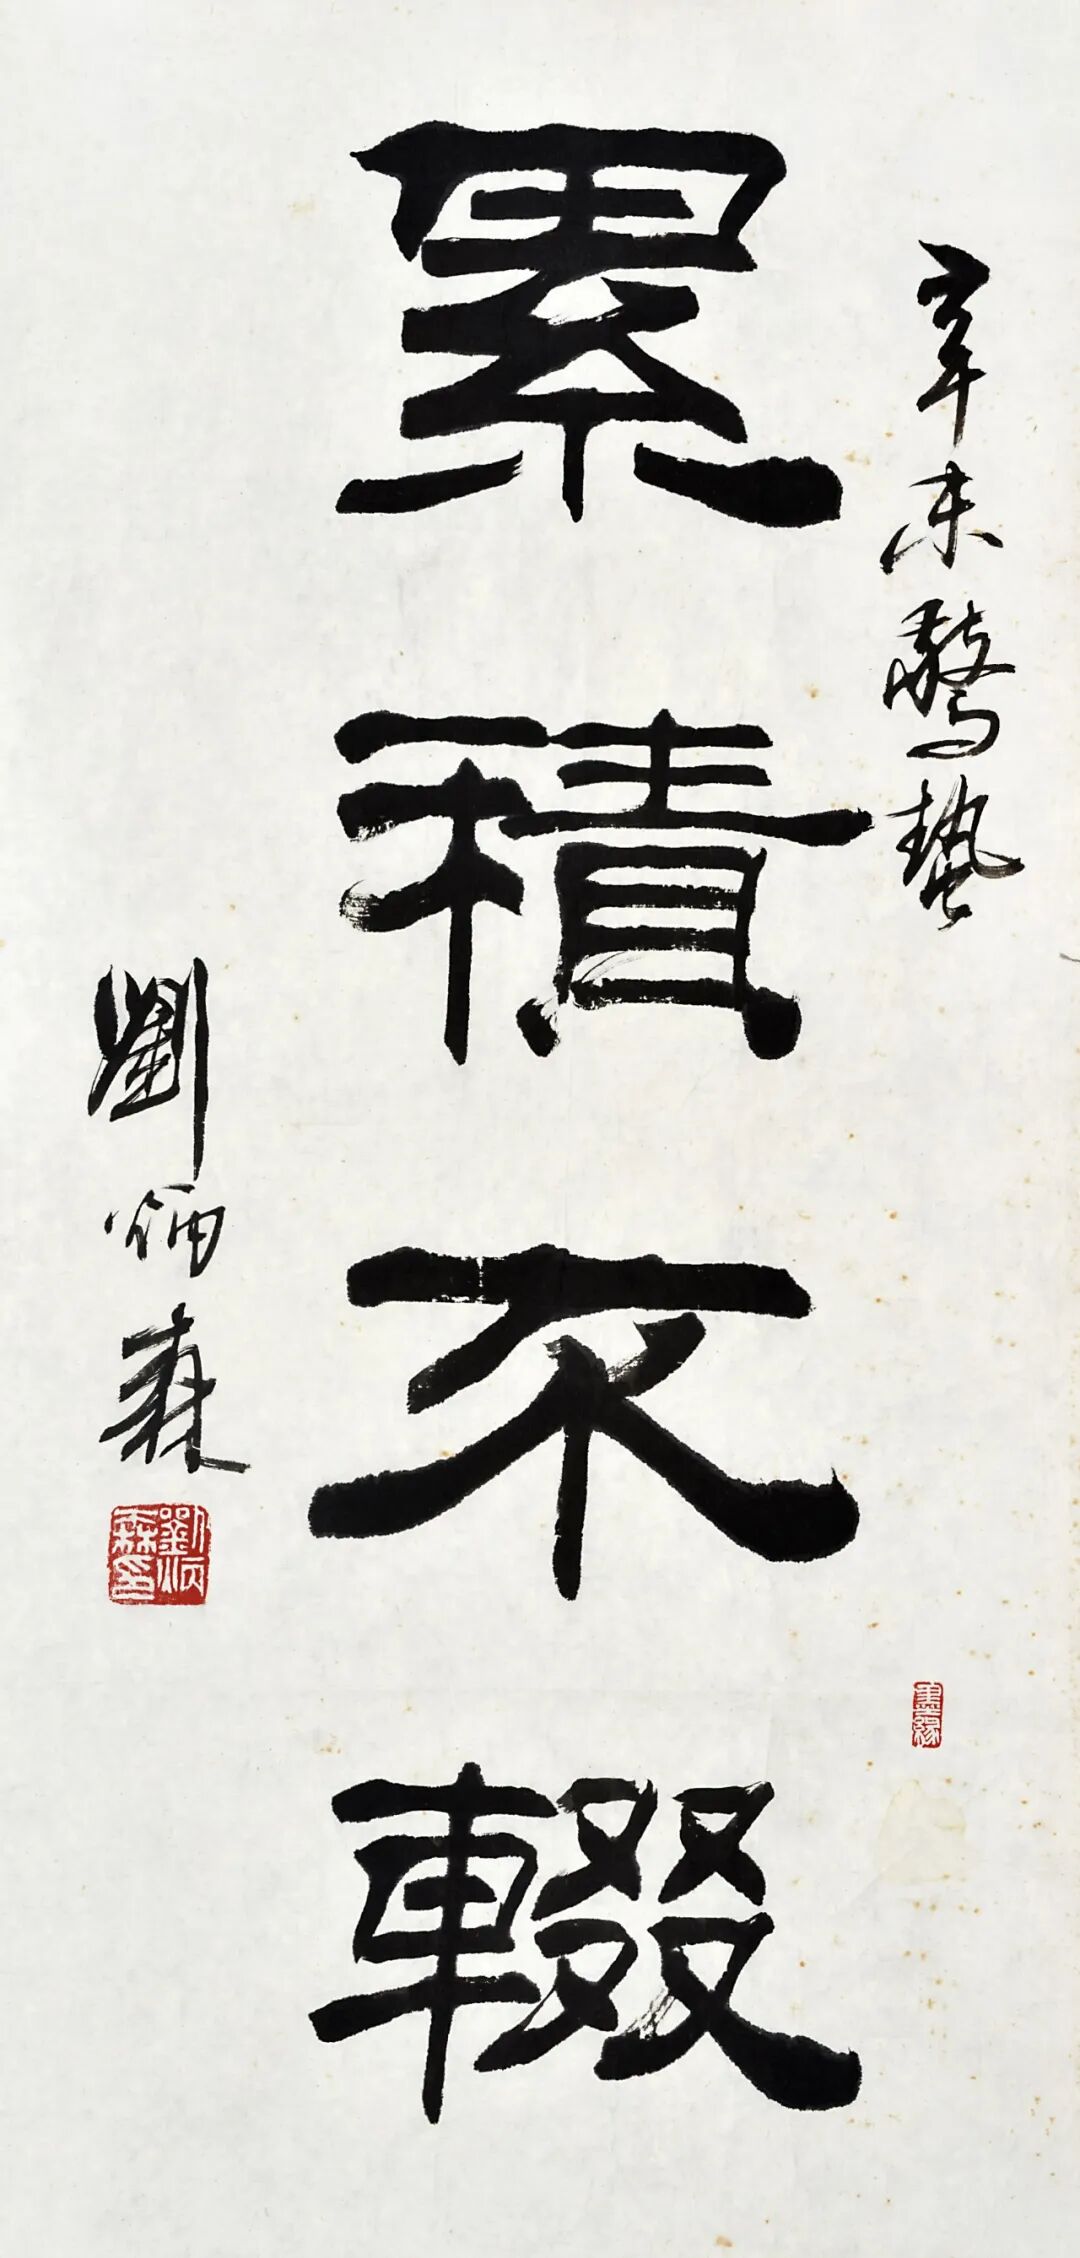 辛未驚蟄
累積不輟
劉炳森
劉炳森印
墨緣